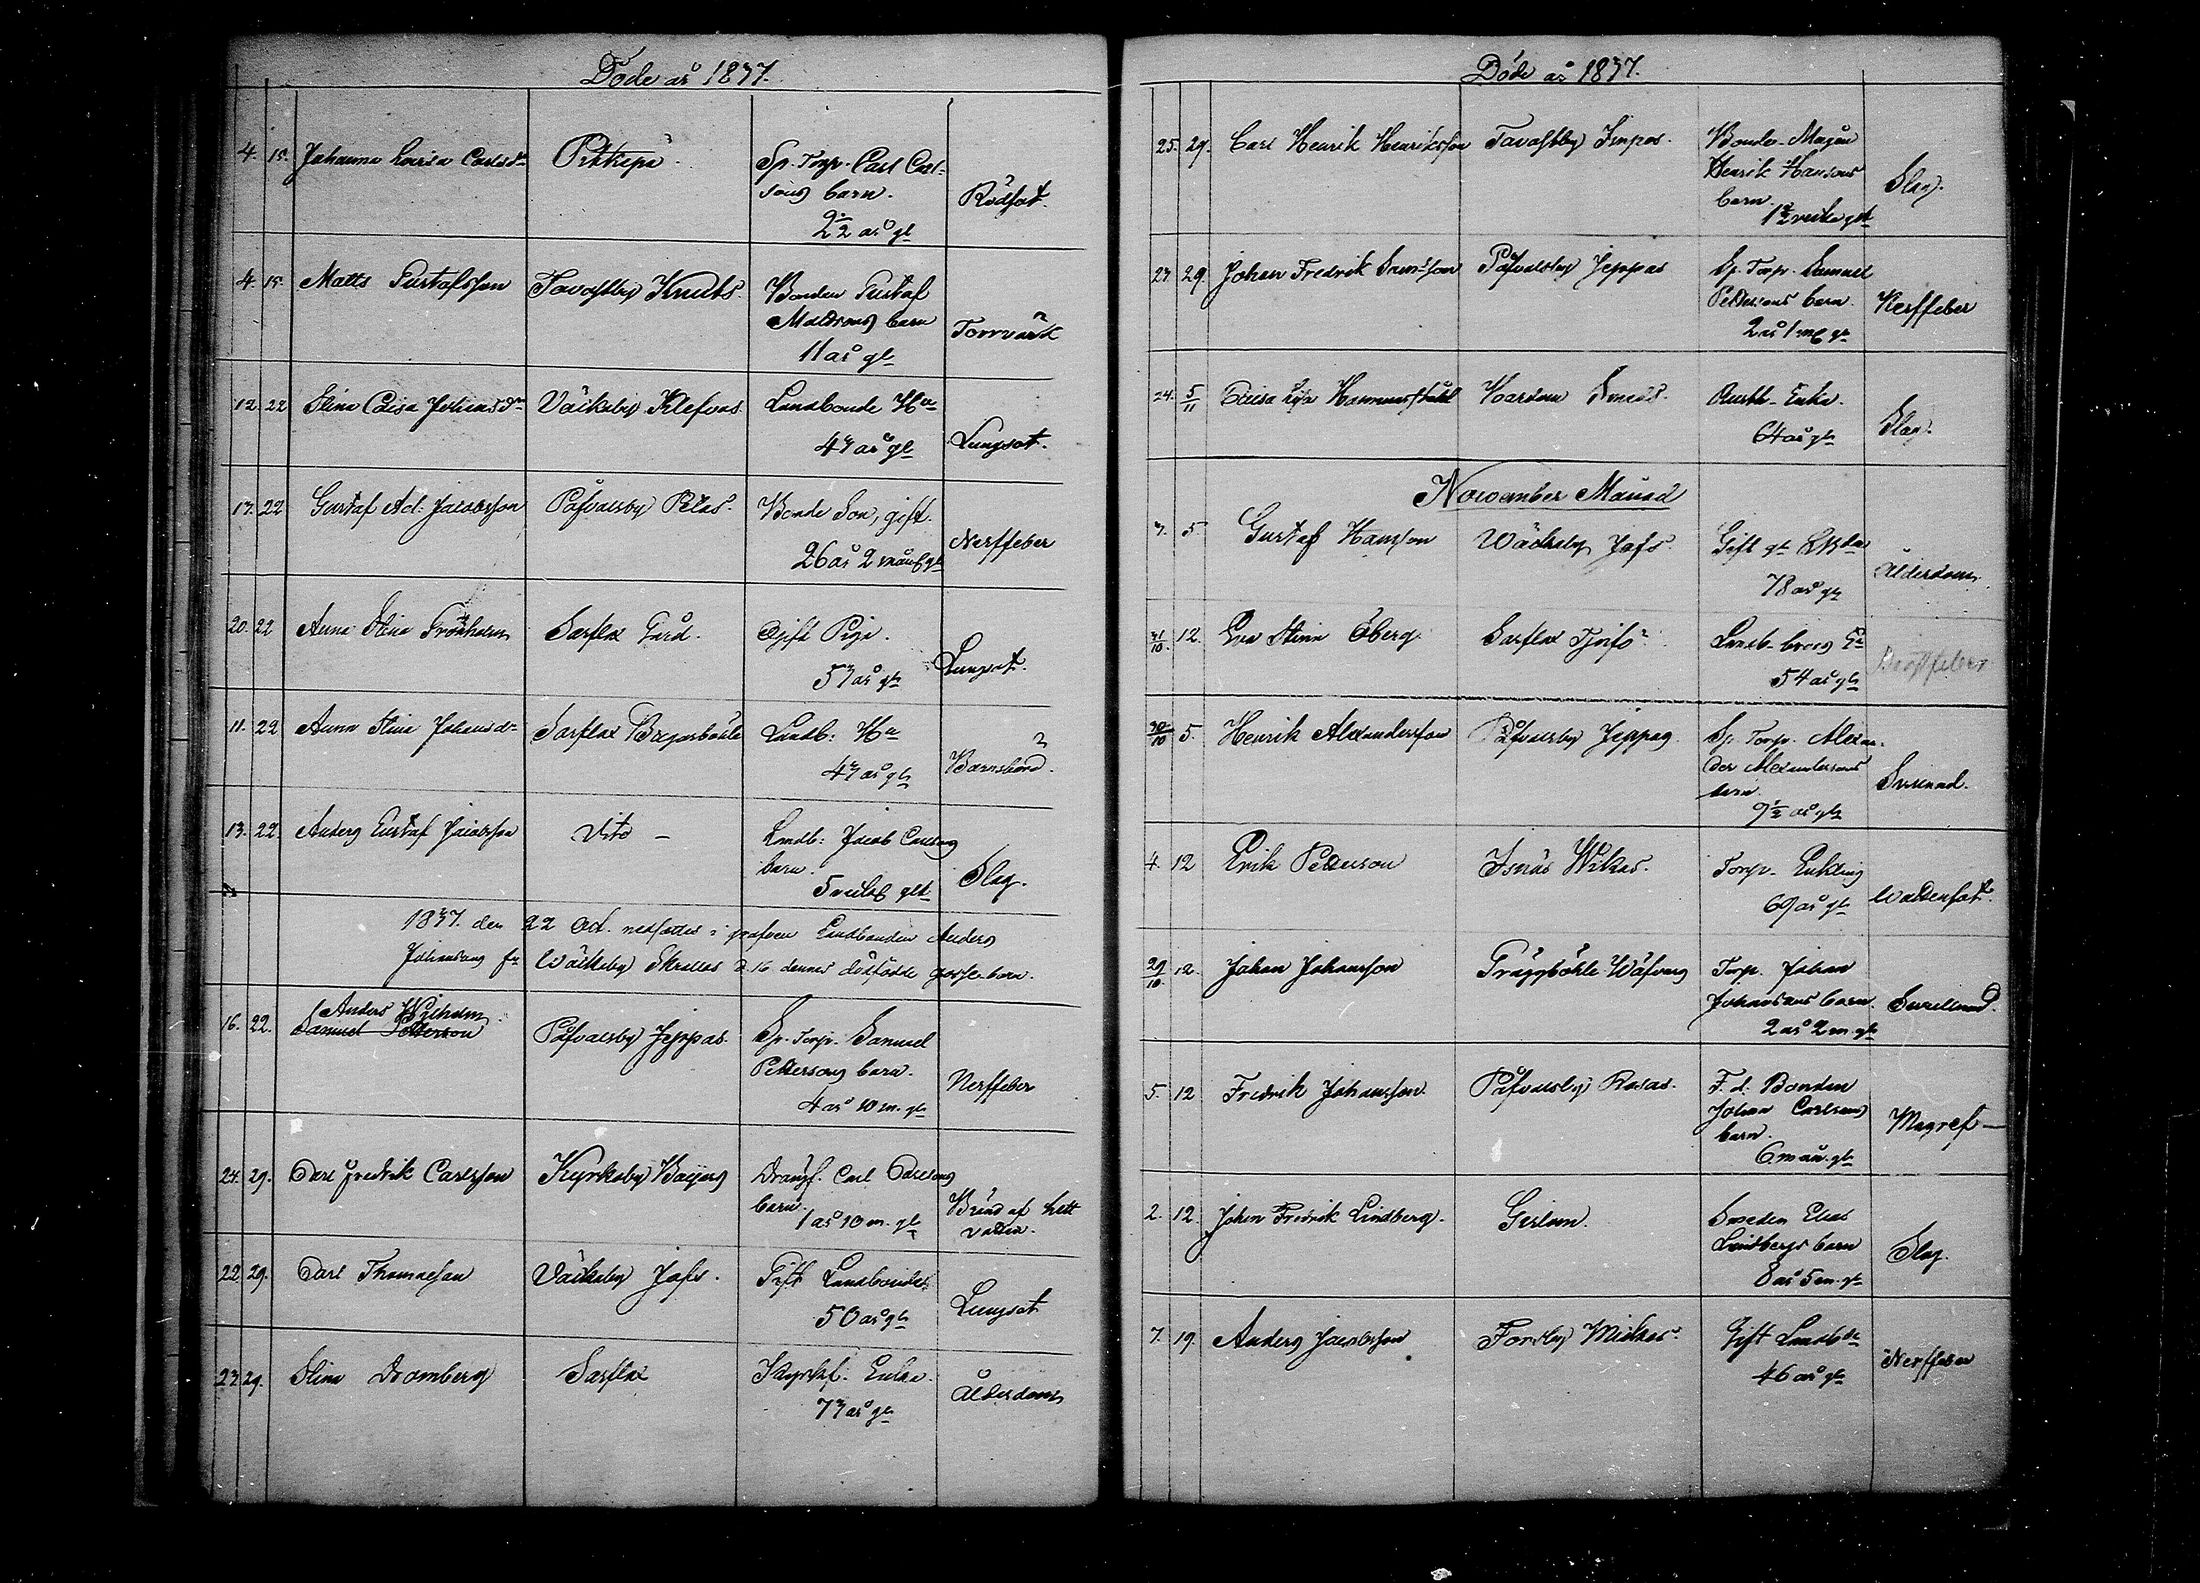 Döde år 1837.
4. 15. Johanna Lovisa Carlsdr Pikkepä Sp. Torp. Carl Carl-
sons barn.
2 1/2 år gl Rödsot.
4. 15. Matts Gustafsson Tavastby Knuts. Bonden Gustaf
Mattsons barn
11 år gl Torrvärk
12. 22 Stina Caisa Johansdr Väckeby Klefvas Landbonde Hu
47 år gl Lungsot.
13. 22 Gustaf Ad. Jacobsson Påfvalsby Pelas. Bonde Son, gift.
26 år 2 mån gl Nerffeber
20. 22 Anna Stina Grönholm Sarflax Gård. Ogift Piga.
57 år gl Lungsot.
11. 22 Anna Stina Johansdr Sarflax Bagarböhle Landb: Hu
47 år gl Barnsbörd.
13. 22 Anders Gustaf Jacobsson Dito - Landb: Jacob Carlsons
barn.
5 gl Slag.
1837. den 22 Oct. nedsattes i grafven Landbonden Anders
Johansons fr Wäckeby Skrallas d. 16 dennes dödfödde gosse-barn.
16. 22. Anders Wilhelm
Samuel Petterson Påfvalsby Jeppas. Sp. Torp. Samuel
Pettersons barn.
4 år 10 m. gl Nerffeber
24. 29. Carl Fredrik Carlsson Kyrkoby Barjars Carl Carlsons
barn.
1 år 10 m. gl Bränd af hett
vatten.
22. 29. Carl Thomasson Väckeby Jofs. Gift Landbonde
50 år gl Lungsot
23. 29. Stina Dromberg Sarflax Enka.
77 år gl Ålderdom
Döde år 1837.
25. 29. Carl Henrik Henriksson Tavastby Impos. Bonde-Mågen
Henrik Hansons
barn.
1 1/2 vecka glt Slag.
23. 29. Johan Fredrik Sam:sson Påfvalsby Jeppas Sp. Torp. Samuel
Pettersons barn.
2 år 1 m gl Nerffeber
24. 5/11 Caisa Lisa Hammarstedt Hardom Smeds. Enka.
64 år gl Slag.
November Månad
3. 5 Gustaf Hansson Wäckeby Jofs. Gift gl
78 år gl Ålderdom.
31/10. 12. Eva Stina Öberg Sarflax Tjofs Landb.
54 år gl
30/10 5. Henrik Alexandersson Påfvalsby Jeppas Sp. Torp. Alexan-
der Alexandersons
barn.
9 1/2 år gl
4. 12 Erik Petterson Isnäs Wikas. Torp. Enkling
69 år gl Wattensot.
29/10. 12. Johan Johansson Gräggböhle Wäfvars Torp. Johan
Johansons barn.
2 år 2 m. gl
5. 12 Fredrik Johansson. Påfvalsby Rasas. F. d. Bonden
Johan Carlsons
barn.
6 mån. gl Magref -
2. 12. Johan Fredrik Lindberg. Gislom. Smeden Elias
Lindbergs barn
8 år 5 m. gl Slag.
7. 19. Anders Jacobsson Forsby Mickas. Gift Landbde
46 år gl Nerffeber